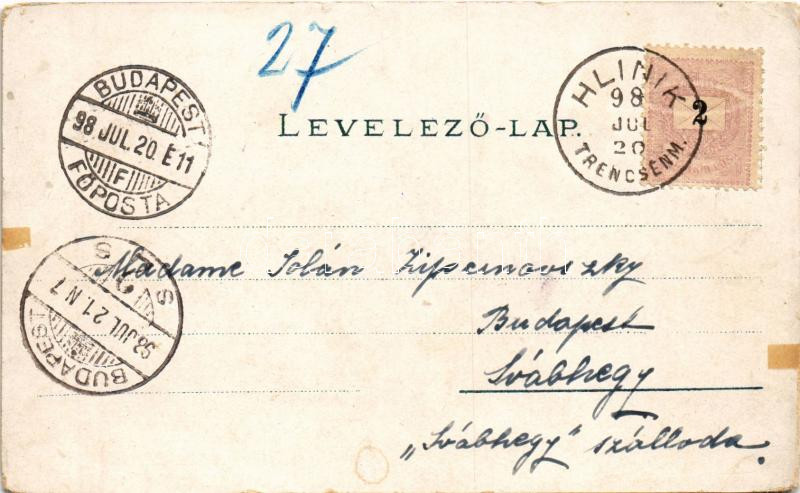 27
BUDAPEST
98 JUL. 20. E 11
F
FŐPOSTA
LEVELEZŐ-LAP.
HLINIK
98
JUL
20
TRENCSÉNM.
2
BUDAPEST
98 JUL 21. N 7
Madame Zipernovszky
Budapest
Svábhegy
„Svábhegy” szálloda.